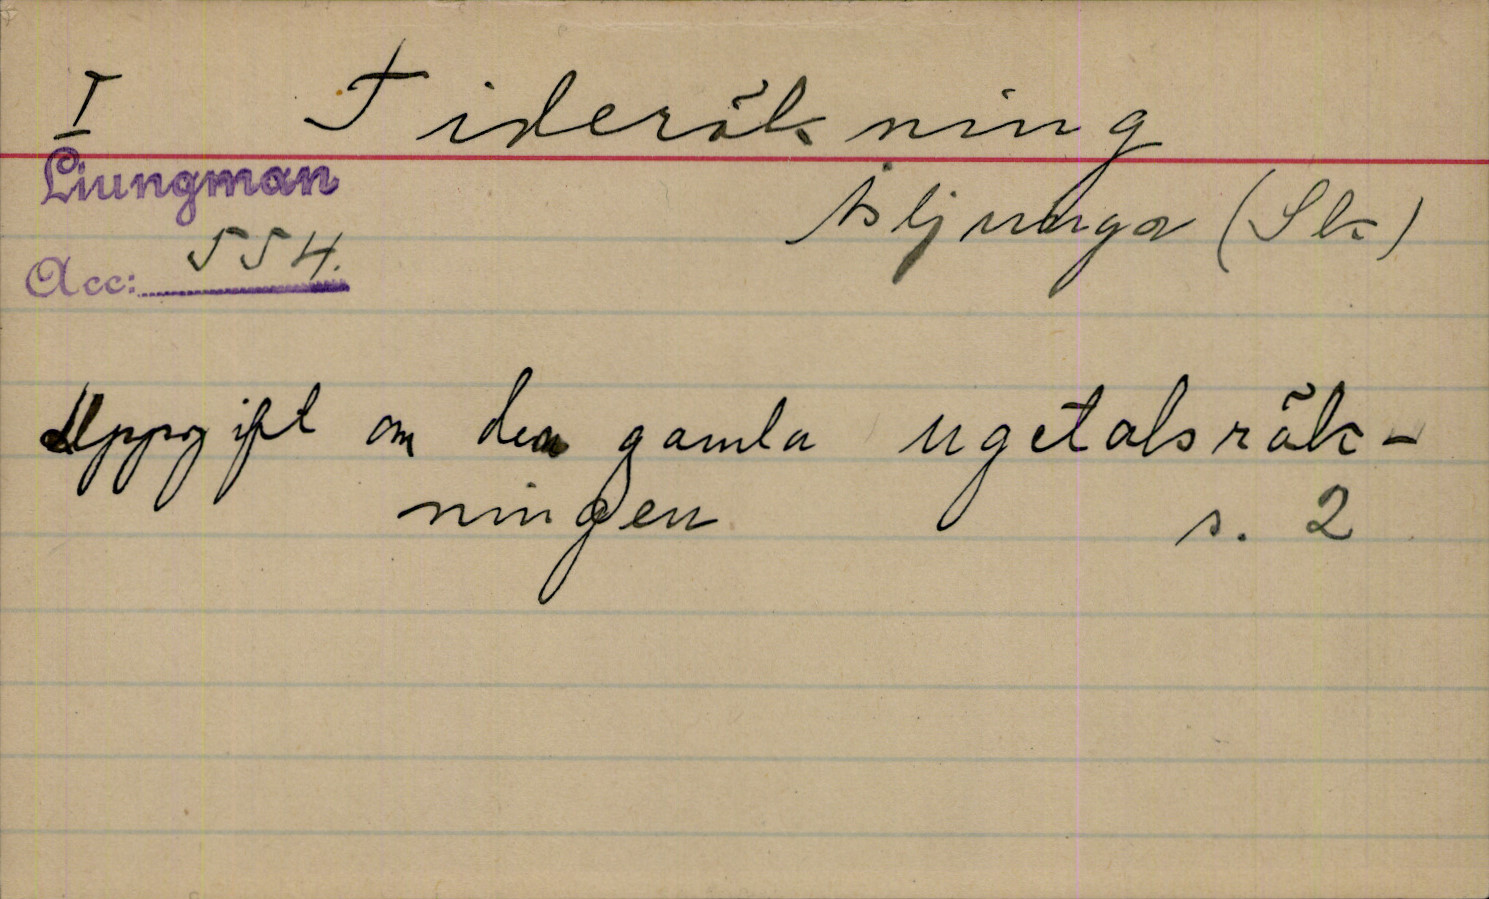 I Tideräkning
Liungman
Åsljunga (Sk)
Acc: 554.
Uppgift om den gamla ugetalsräk-
ningen s. 2